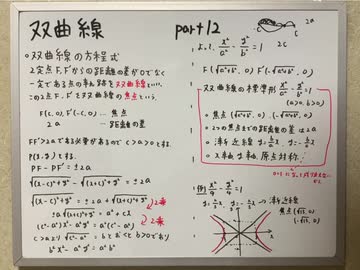 双曲線
part12
○双曲線の方程式
2定点F,F'からの距離の差が0でなく
一定である点の軌跡を双曲線といい、
この2点F,F'を双曲線の焦点という。
F(c,0),F'(-c,0) … 焦点
2a … 距離の差
FF'>2aである必要があるので c>a>0とする。
P(x,y)とする。
PF-PF'=±2a
√(x-c)²+y² - √(x+c)²+y² = ±2a
√(x-c)²+y² = ±2a+√(x+c)²+y²
2乗
±a√(x+c)²+y² = a²+cx
2乗
(c²-a²)x²-a²y²=a²(c²-a²)
c>aより √c²-a²=bとおくとb>0であり
b²x²-a²y²=a²b²
2a
2c
2c
よって、x²/a²-y²/b²=1
F(√a²+b²,0) F'(-√a²+b²,0)
双曲線の標準形 x²/a²-y²/b²=1
(a>0,b>0)
○焦点(√a²+b²,0),(-√a²+b²,0)
○2つの焦点までの距離の差は2a
○漸近線 y=b/a x, y=-b/a x
○x軸,y軸,原点対称
例1 x²/9-y²/4=1
y=2/3x, y=-2/3x → 漸近線
焦点(√13,0)
(-√13,0)